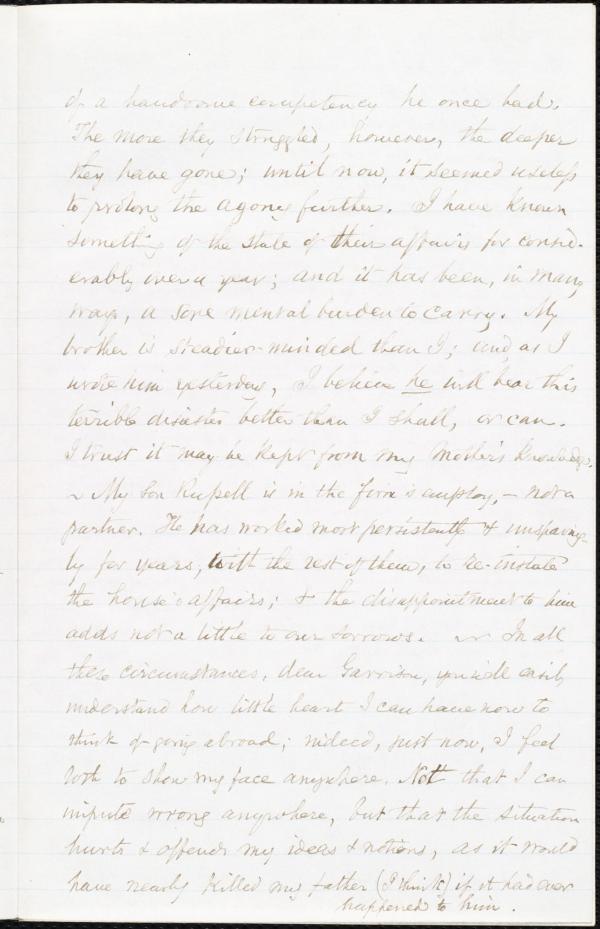 of a handsome competency he once had.
The more they struggled, however, the deeper
they have gone; until now, it seemed useless
to prolong the agony further. I have known
something of the state of their affairs for consid-
erably over a year; and it has been, in many
ways, a sore mental burden to carry. My
brother is steadier-minded than I; and, as I
wrote him yesterday, I believe he will bear this
terrible disaster better than I shall, or can.
I trust it may be kept from my Mother's knowledge.
~ My Son Russell is in the firm's employ, – not a
partner. He has worked most persistently & unsparing-
ly for years, with the rest of them, to re-instate
the house's affairs; & the disappointment to him
adds not a little to our sorrows. ~ In all
these circumstances, dear Garrison, you will easily
understand how little heart I can have now to
think of going abroad; indeed, just now, I feel
loth to show my face anywhere. Not that I can
impute wrong anywhere, but that the situation
hurts & offends my ideas & notions, as it would
have nearly killed my father (I think) if it had ever
happened to him.